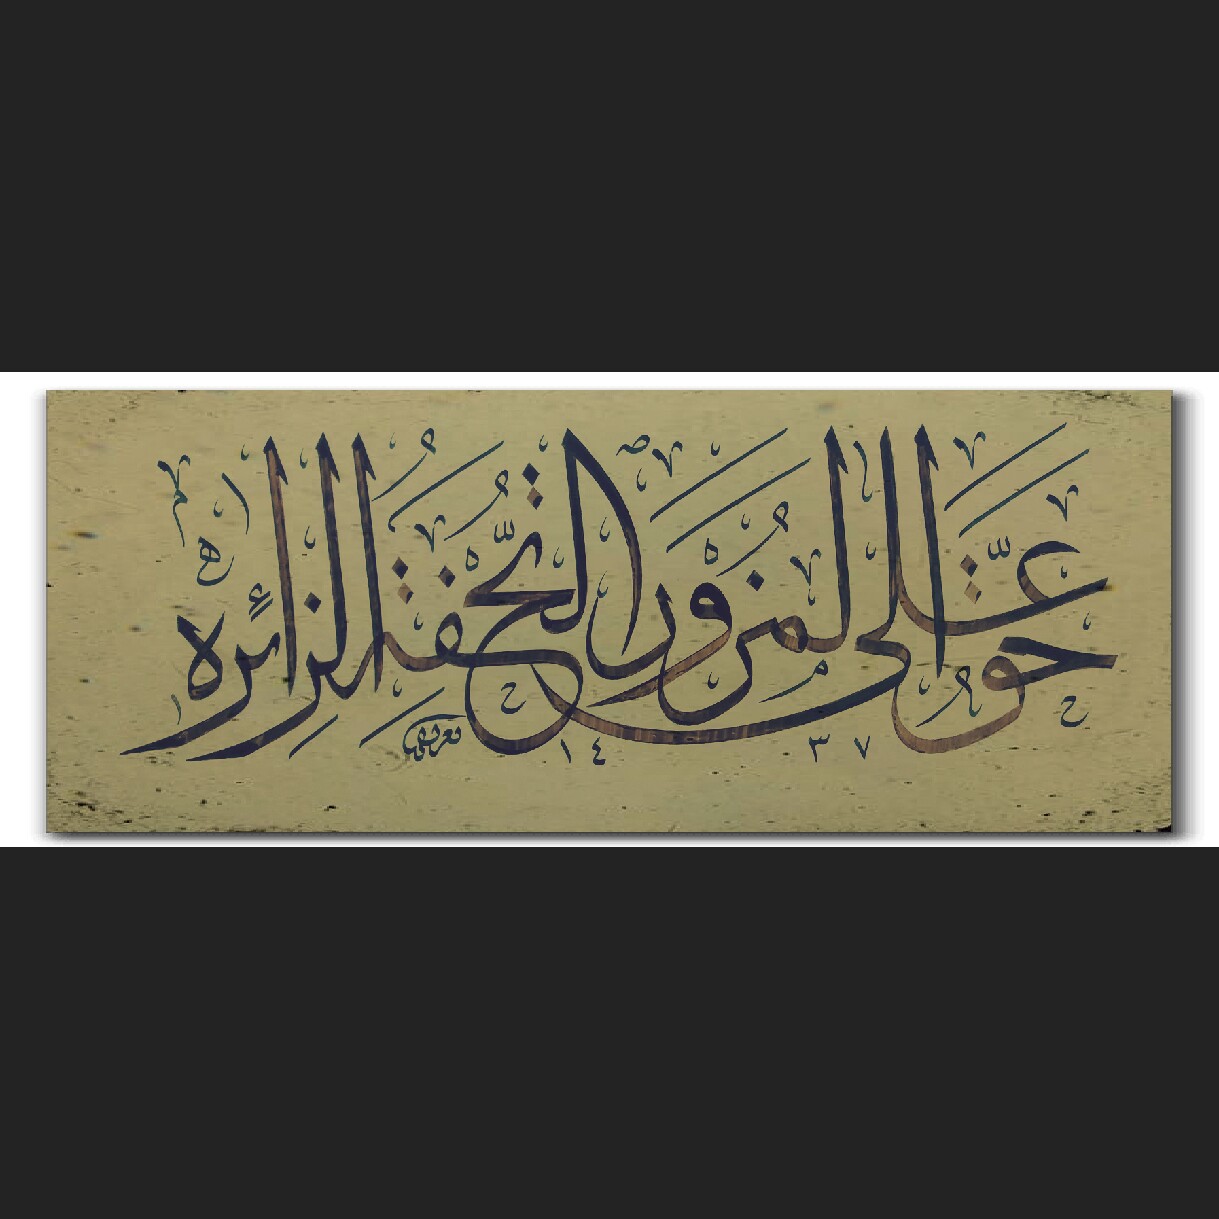 حَقٌّ عَلَى الْمَزُورِ التُّحْفَةُ لِزَائِرِهِ
١٤٣٧